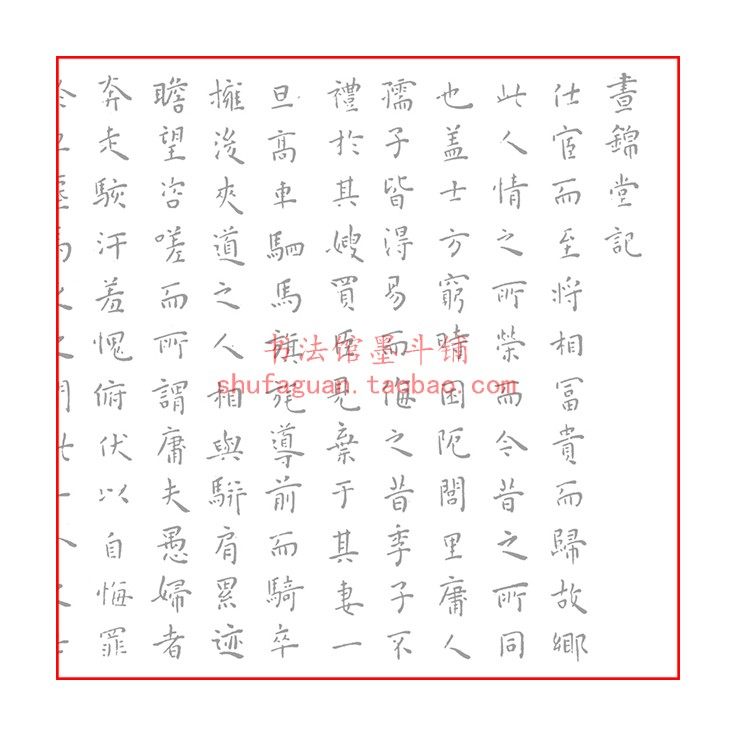 晝錦堂記
仕宦而至將相冨貴而歸故鄉
此人情之所榮而今昔之所同
也盖士方窮時困阨閭里庸人
孺子皆得易而侮之昔季子不
禮於其嫂買臣見棄于其妻一
旦高車駟馬旗旄導前而騎卒
擁後夾道之人相與駢肩累迹
瞻望咨嗟而所謂庸夫愚婦者
奔走駭汗羞愧俯伏以自悔罪
书法馆墨斗铺
shufaguan.taobao.com